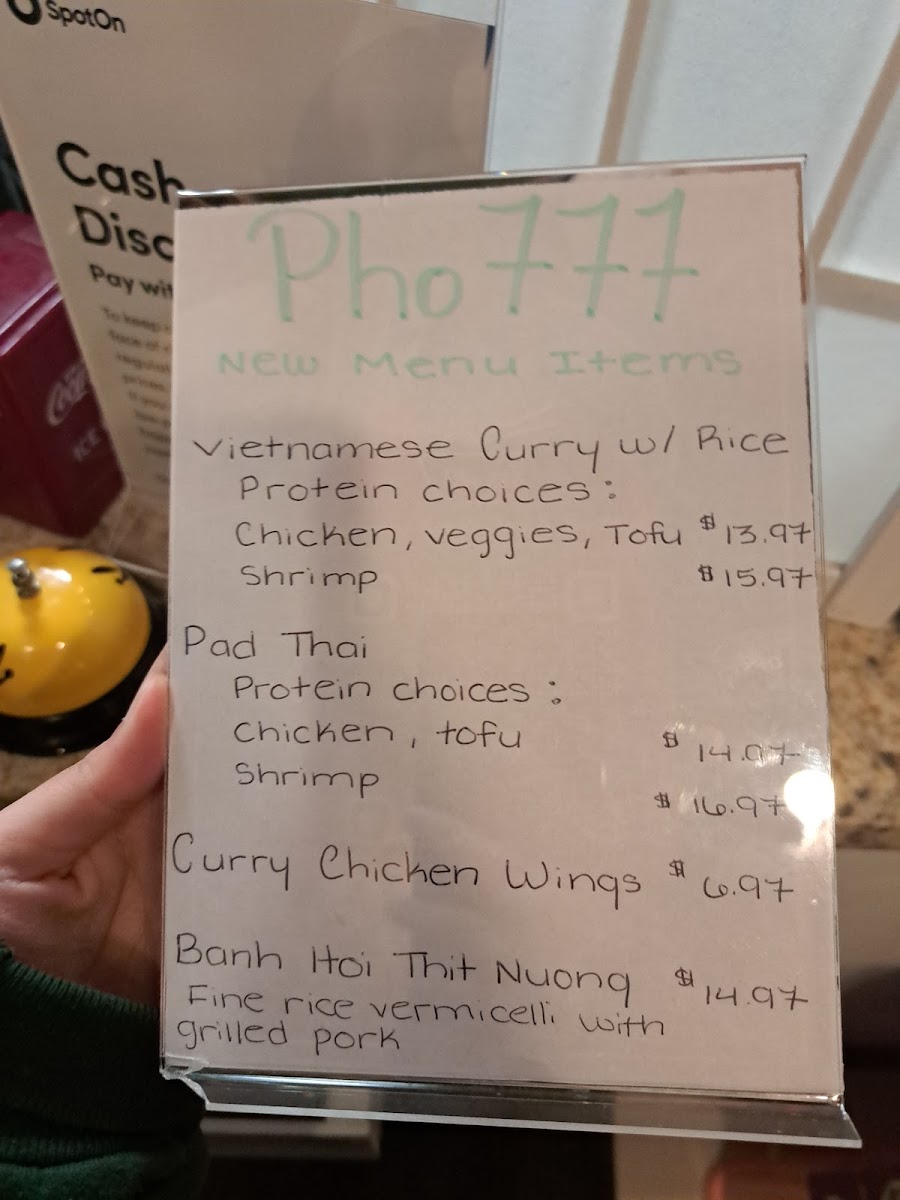 SpotOn
Cash
Disc
Pay wit
To keep
ICE
Pho 777
New Menu Items
Vietnamese Curry w/ Rice
Protein choices:
Chicken, veggies, Tofu $13.97
Shrimp $15.97
Pad Thai
Protein choices:
Chicken, tofu $14.97
Shrimp $16.97
Curry Chicken Wings $6.97
Banh Hoi Thit Nuong $14.97
Fine rice vermicelli with
grilled pork